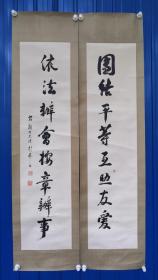 團结平等互照友爱
依法辦會按章辦事